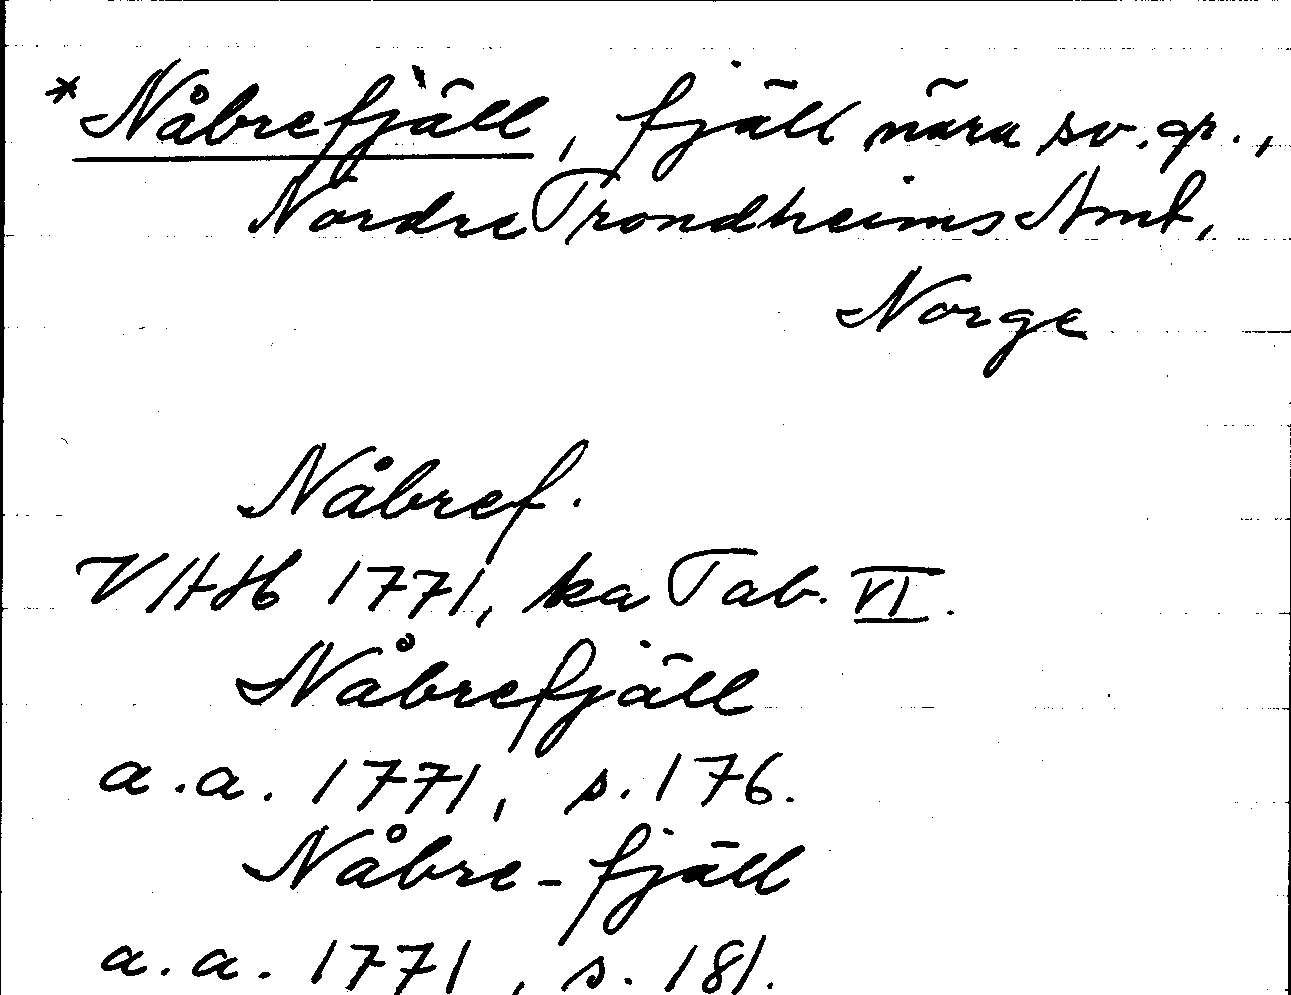 * Nåbrefjäll, fjäll nära sv. gr.,
Nordre Trondheims Amt,
Norge
Nåbref.
VHAH 1771, ka Tab. VI.
Nåbrefjäll
a.a. 1771, s. 176.
Nåbre-fjäll
a.a. 1771, s. 181.